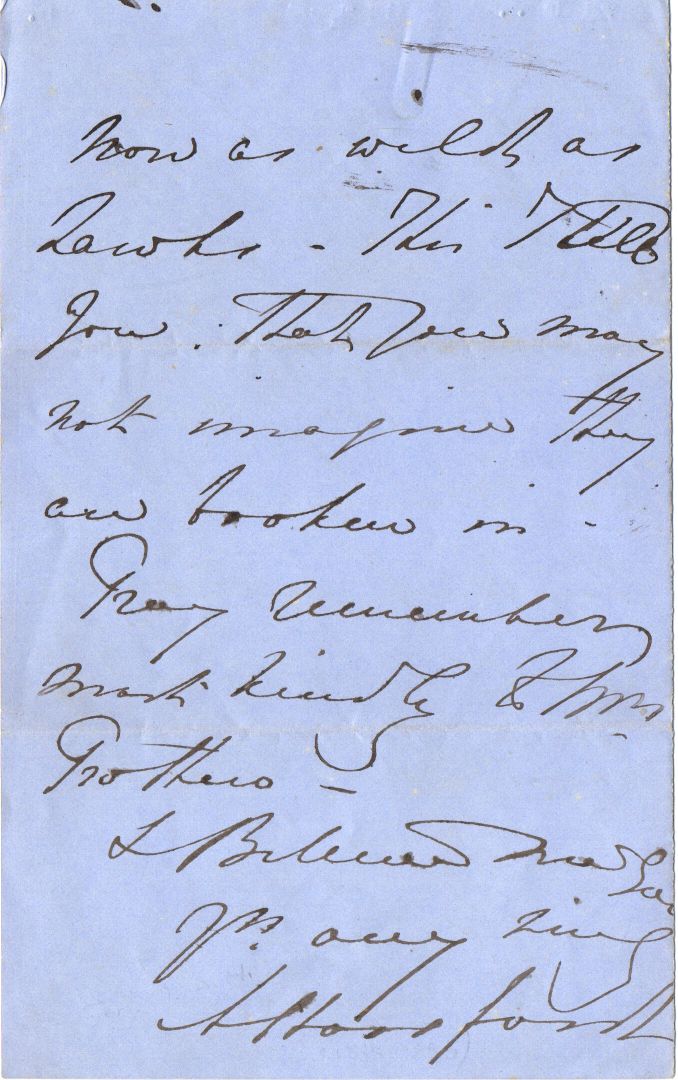 now as wild as
Hawks - This I tell
you. That you may
not imagine they
are broken in -
Pray remember
most kindly to Mrs
Prothero -
& Believe me
Yrs. any
A Horsford